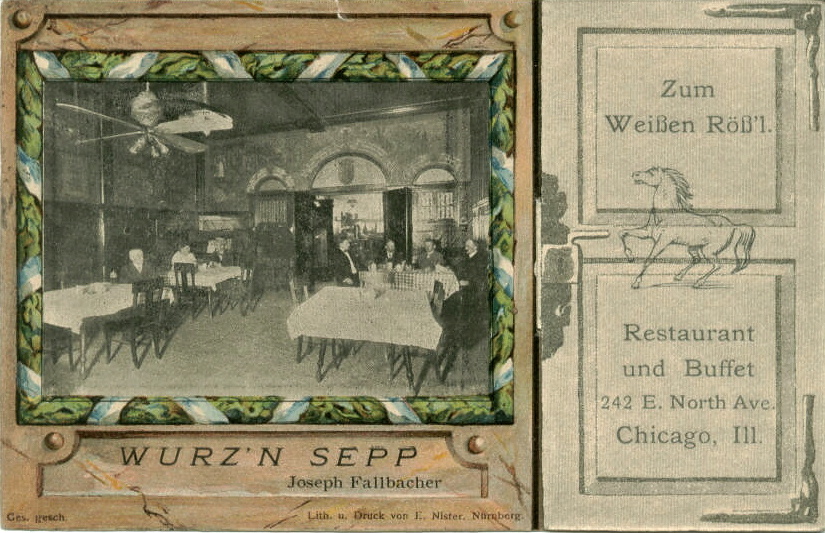 WURZ'N SEPP
Joseph Fallbacher
Ges. gesch.
Lith. u. Druck von E. Nister, Nürnberg.
Zum
Weißen Röß'l.
Restaurant
und Buffet
242 E. North Ave.
Chicago, Ill.